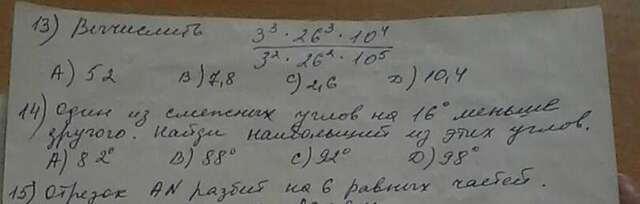 13) Вычислить 3³ · 26³ · 10⁴ / 3² · 26² · 10⁵
А) 52 В) 7,8 С) 2,6 D) 10,4
14) Один из смежных углов на 16° меньше
другого. Найди наибольший из этих углов.
А) 82° В) 88° С) 92° D) 98°
15) Отрезок AN разбит на 6 равных частей.